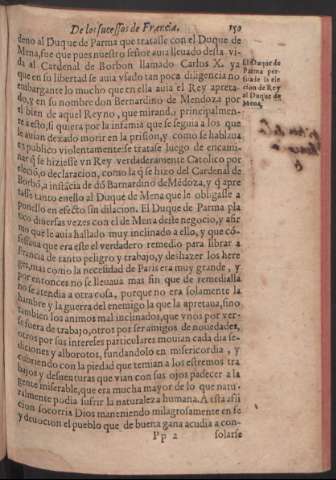 De los sucessos de Francia. 150
deno al Duque de Parma que tratasse con el Duque de
Mena, fue que pues nuestro señor auia lleuado desta vi
da al Cardenal de Borbon llamado Carlos X. ya
que en su libertad se auia vsado tan poca diligencia no
embargante lo mucho que en ella auia el Rey apreta-
do, y en su nombre don Bernardino de Mendoza por
el bien de aquel Reyno, que mirando principalmen-
te a esto, si quiera por la infamia que se seguia a los que
le auian dexado morir en la prision, y como se hablaua
en publico violentamente: se tratasse luego de encami-
nar q̃ se hiziesse vn Rey verdaderamente Catolico por
eleciõ, o declaracion, como la q̃ se hizo del Cardenal de
Borbõ, a instãcia de dõ Bernardino de Mẽdoza, y q̃ apre
tasse tanto en esto al Duque de Mena que le obligasse a
ponello en efecto sin dilacion. El Duque de Parma pla
tico diuersas vezes con el de Mena deste negocio, y afir
mo que le auia hallado muy inclinado a ello, y que cõ-
fessaua que era este el verdadero remedio para librar a
Francia de tanto peligro y trabajo, y deshazer los here
ges, mas como la necessidad de Paris era muy grande, y
por entonces no se lleuaua mas fin que de remedialla
no se atendia a otra cosa, porque no era solamente la
hambre y la guerra del enemigo la que apretaua, sino
tambien los animos mal inclinados, que vnos por ver-
se fuera de trabajo, otros por ser amigos de nouedades,
otros por sus intereses particulares mouian cada dia se-
diciones y alborotos, fundandolo en misericordia, y
cubriendo con la piedad que tenian a los estremos tra
bajos y desuenturas que vian con sus ojos padecer a la
gente miserable, que era mucha mayor de lo que natu-
ralmente podia sufrir la naturaleza humana. A esta afli
cion socorria Dios manteniendo milagrosamente en fe
y deuocion el pueblo que de buena gana acudia a con-
Pp 2 solarse
El Duque de
Parma per-
suade la ele
cion de Rey
al Duque de
Mena.